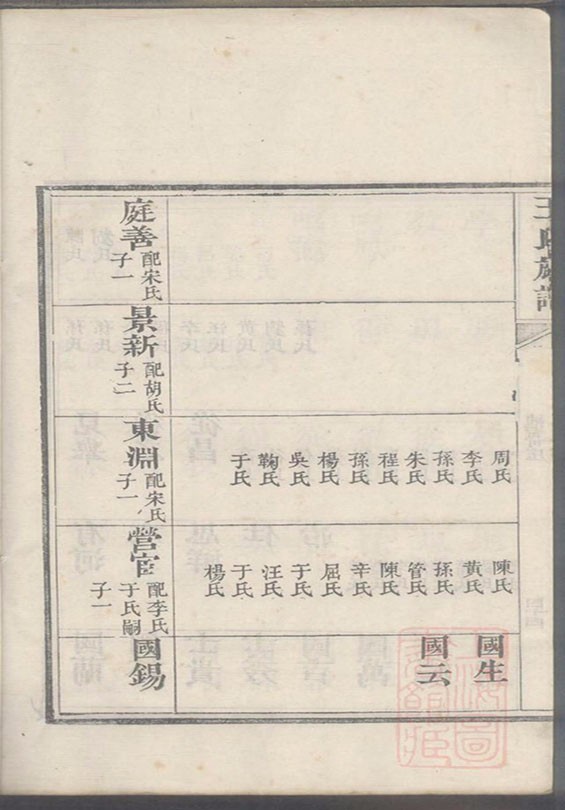 王氏族譜
周氏
李氏
孫氏
朱氏
程氏
孫氏
楊氏
吳氏
鞠氏
于氏
陳氏
黃氏
孫氏
管氏
陳氏
辛氏
屈氏
于氏
汪氏
于氏
楊氏
國生
國云
庭善 配宋氏
子一
景新 配胡氏
子二
東淵 配宋氏
子一
營官 配李氏
于氏嗣
子一
國錫